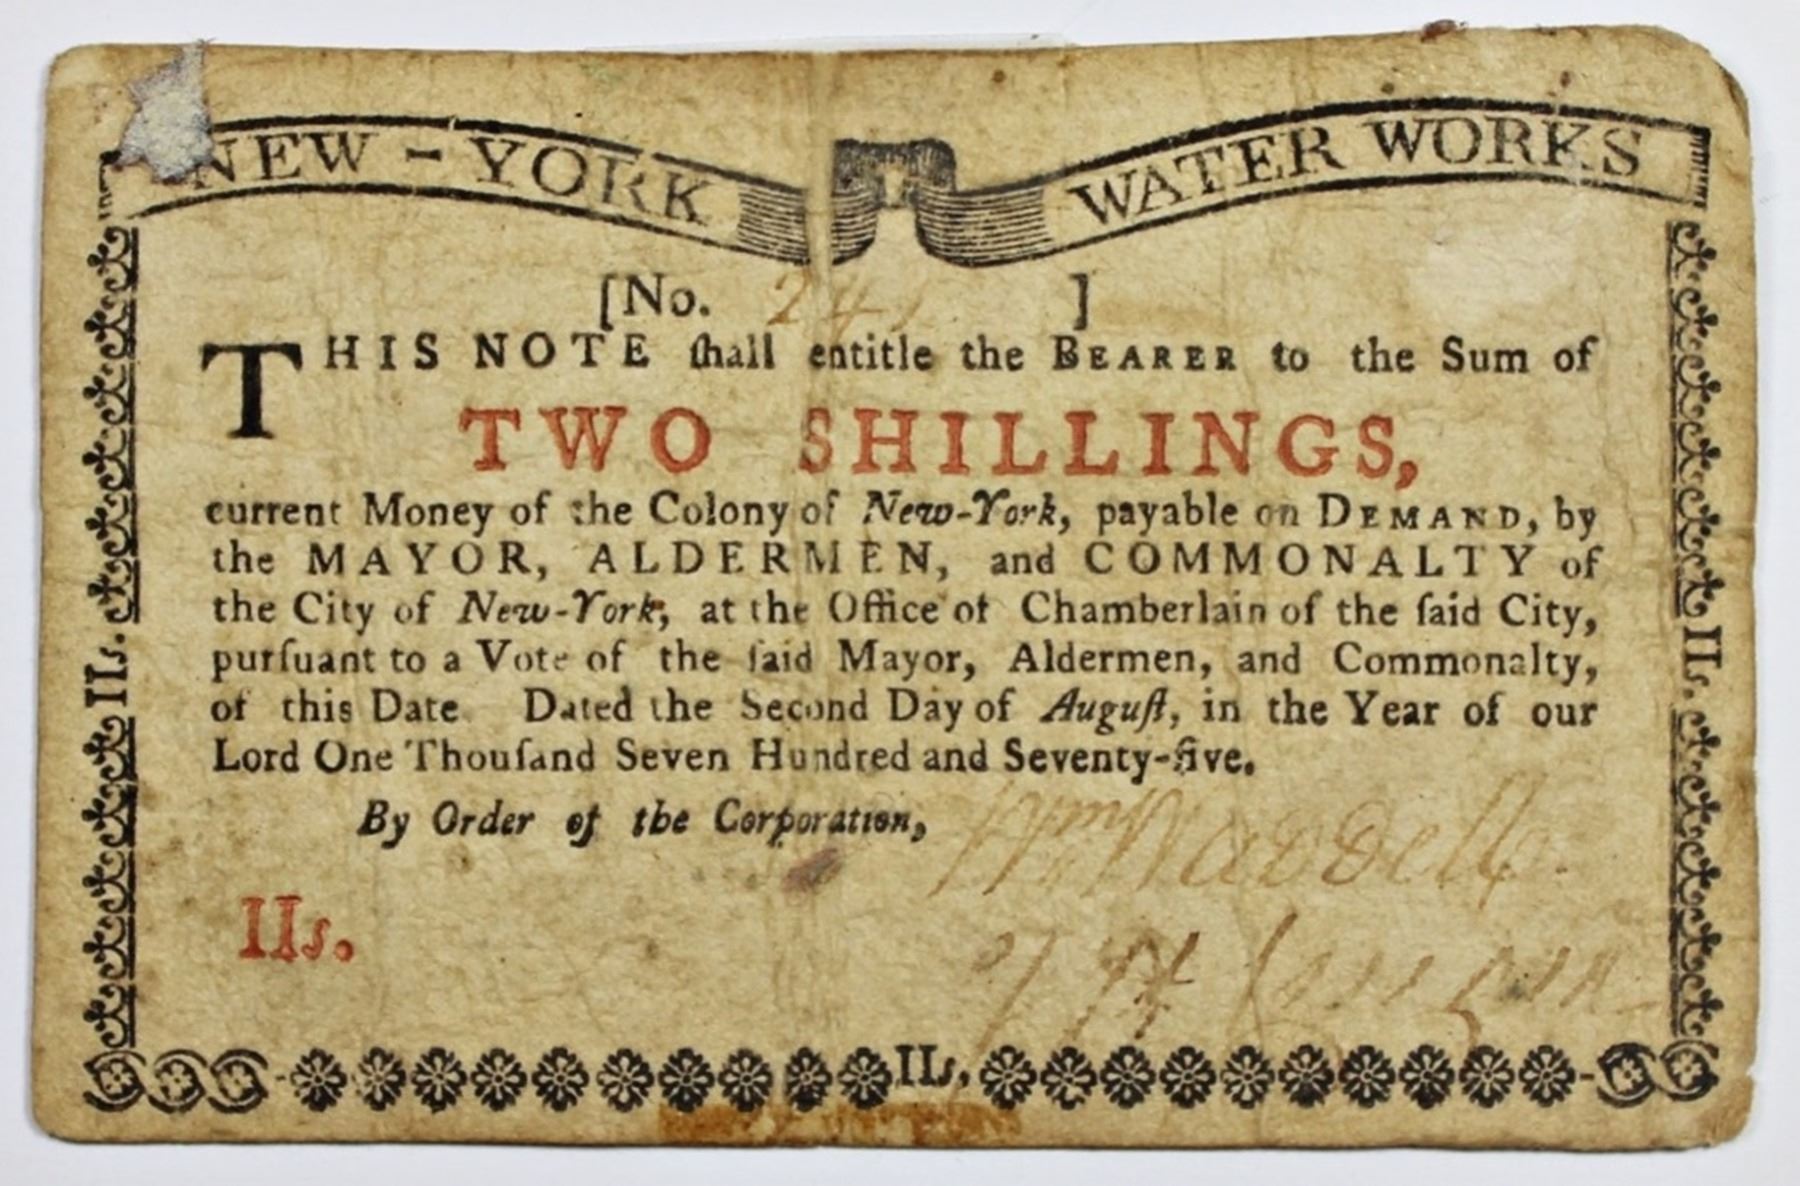 NEW-YORK WATER WORKS
[No. 24 ]
THIS NOTE ſhall entitle the BEARER to the Sum of
TWO SHILLINGS,
current Money of the Colony of New-York, payable on DEMAND, by
the MAYOR, ALDERMEN, and COMMONALTY of
the City of New-York, at the Office of Chamberlain of the ſaid City,
purſuant to a Vote of the ſaid Mayor, Aldermen, and Commonalty,
of this Date. Dated the Second Day of Auguſt, in the Year of our
Lord One Thouſand Seven Hundred and Seventy-five.
By Order of the Corporation,
Wm Waddell
IIs.
IIs.
IIs.
IIs.